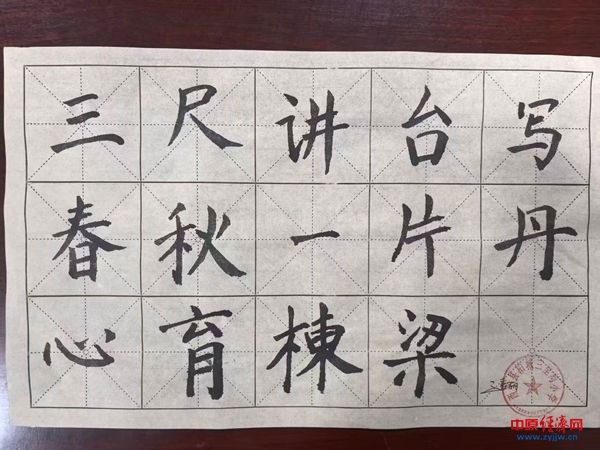 三尺讲台写
春秋一片丹
心育棟梁
中原经济网
www.zyjjw.cn